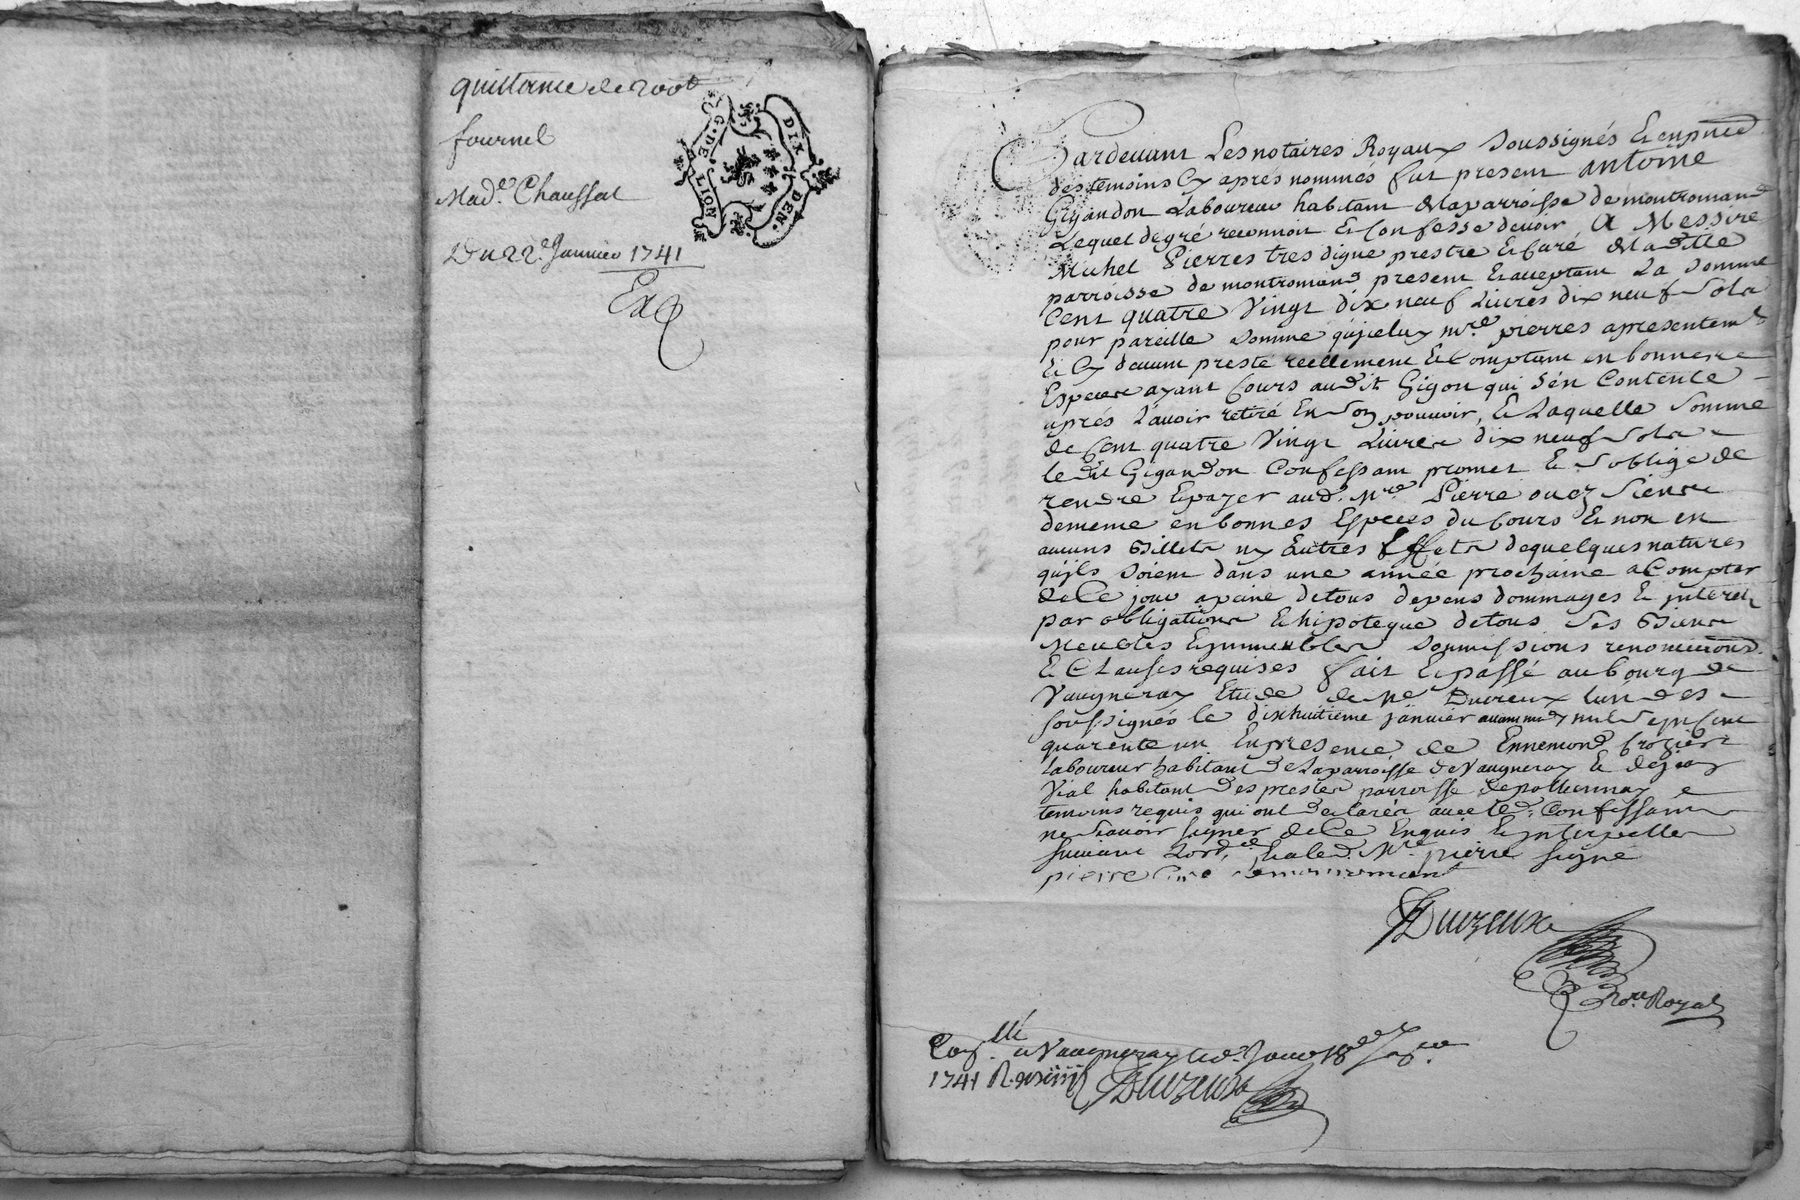 quittance de 200lt
fournel
Made. Chaussat
Du 22e. Janvier 1741
Ex
G. DE LION
DIX DEN.
Pardevant Les notaires Royaux soussignés Et en pnce
des temoins Cy apres nommés fut present antoine
Gigandon Laboureur habitant de la parroisse de montromand
Lequel de gré reconnoit Et Confesse devoir A Messire
Michel Pierres tres digne prestre Et Curé de laditte
parroisse de montromand present Et acceptant La somme
Cent quatre Vingt dix neuf Livres dix neuf sols
pour pareille somme qu'iceluy mre. pierres a presentemt
Et Cy devant presté reellement Et Comptant en bonnes
Especes ayant Cours audit Gigon qui s'en Contente
aprés L'avoir retiré En son pouvoir, Et Laquelle somme
de Cent quatre Vingt Livres dix neuf sols
le dit Gigandon Confessant promet Et s'oblige de
rendre Et payer aud. Mre. Pierre ou es siens
de meme en bonnes Especes du Cours Et non en
aucuns Billets ny Autres Effets de quelques natures
qu'ils soient dans une année prochaine a Compter
de Ce jour a peine de tous depens dommages Et interets
par obligations Et hipoteque de tous ses Biens
Meubles Et immeubles soumissions renonciations
Et Clauses requises fait Et passé au bourg de
Vaugneray Etude de Me Duvreux l'un des
soussignés le dixhuitieme janvier avant midy mil sept Cent
quarente un En presence de Ennemond Crozier
Laboureur habitant de La parroisse de Vaugneray Et de jean
Vial habitant des presles parroisse de pollionnay
temoins requis qui ont declarés avec led. Confessant
ne sçavoir signer de Ce Enquis Et interpellés
suivant L'ordce. Et a led. Mre. pierre signé
pierre Curé de montromant
Duvreux
Nore. Royal
Conllé a Vaugneray led. Jour 18e Janvier
1741 R. Duvreux